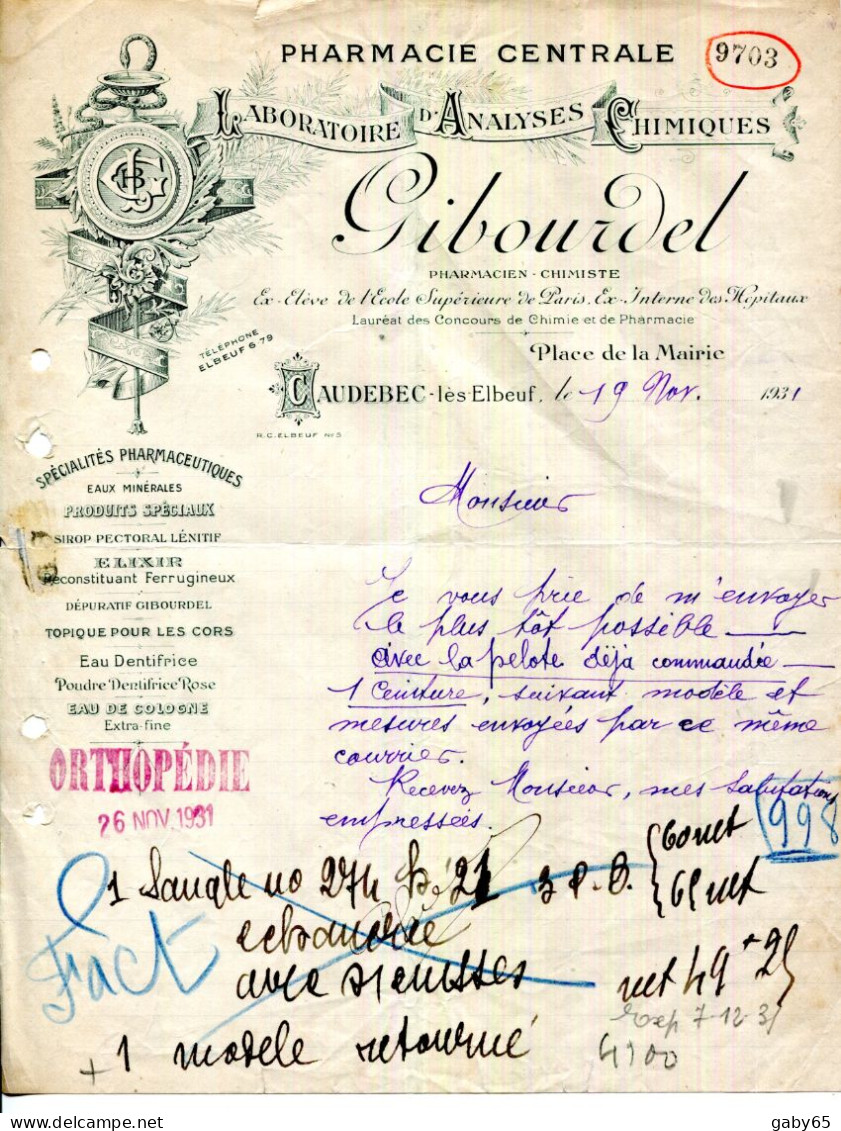 PHARMACIE CENTRALE
9703
LABORATOIRE D'ANALYSES CHIMIQUES
Gibourdel
PHARMACIEN - CHIMISTE
Ex-Elève de l'Ecole Supérieure de Paris, Ex-Interne des Hôpitaux
Lauréat des Concours de Chimie et de Pharmacie
TÉLÉPHONE
ELBEUF 6 79
Place de la Mairie
CAUDEBEC-lès-Elbeuf, le 19 Nov. 1931
R.C. ELBEUF No 5
SPÉCIALITÉS PHARMACEUTIQUES
EAUX MINÉRALES
PRODUITS SPÉCIAUX
SIROP PECTORAL LÉNITIF
ELIXIR
Reconstituant Ferrugineux
DÉPURATIF GIBOURDEL
TOPIQUE POUR LES CORS
Eau Dentifrice
Poudre Dentifrice Rose
EAU DE COLOGNE
Extra-fine
ORTHOPÉDIE
26 NOV. 1931
Monsieur
Je vous prie de m'envoyer
le plus tôt possible
avec la pelote déja commandée
1 Ceinture, suivant modèle et
mesures envoyées par ce même
courrier.
Recevez Monsieur, mes salutations
empressées.
998
1 Sangle no 274
60 net
65 net
echancrée
avec
net 49 + 25
Fact
Exp 7-12-31
+ 1 modele retourné
4900
gaby65